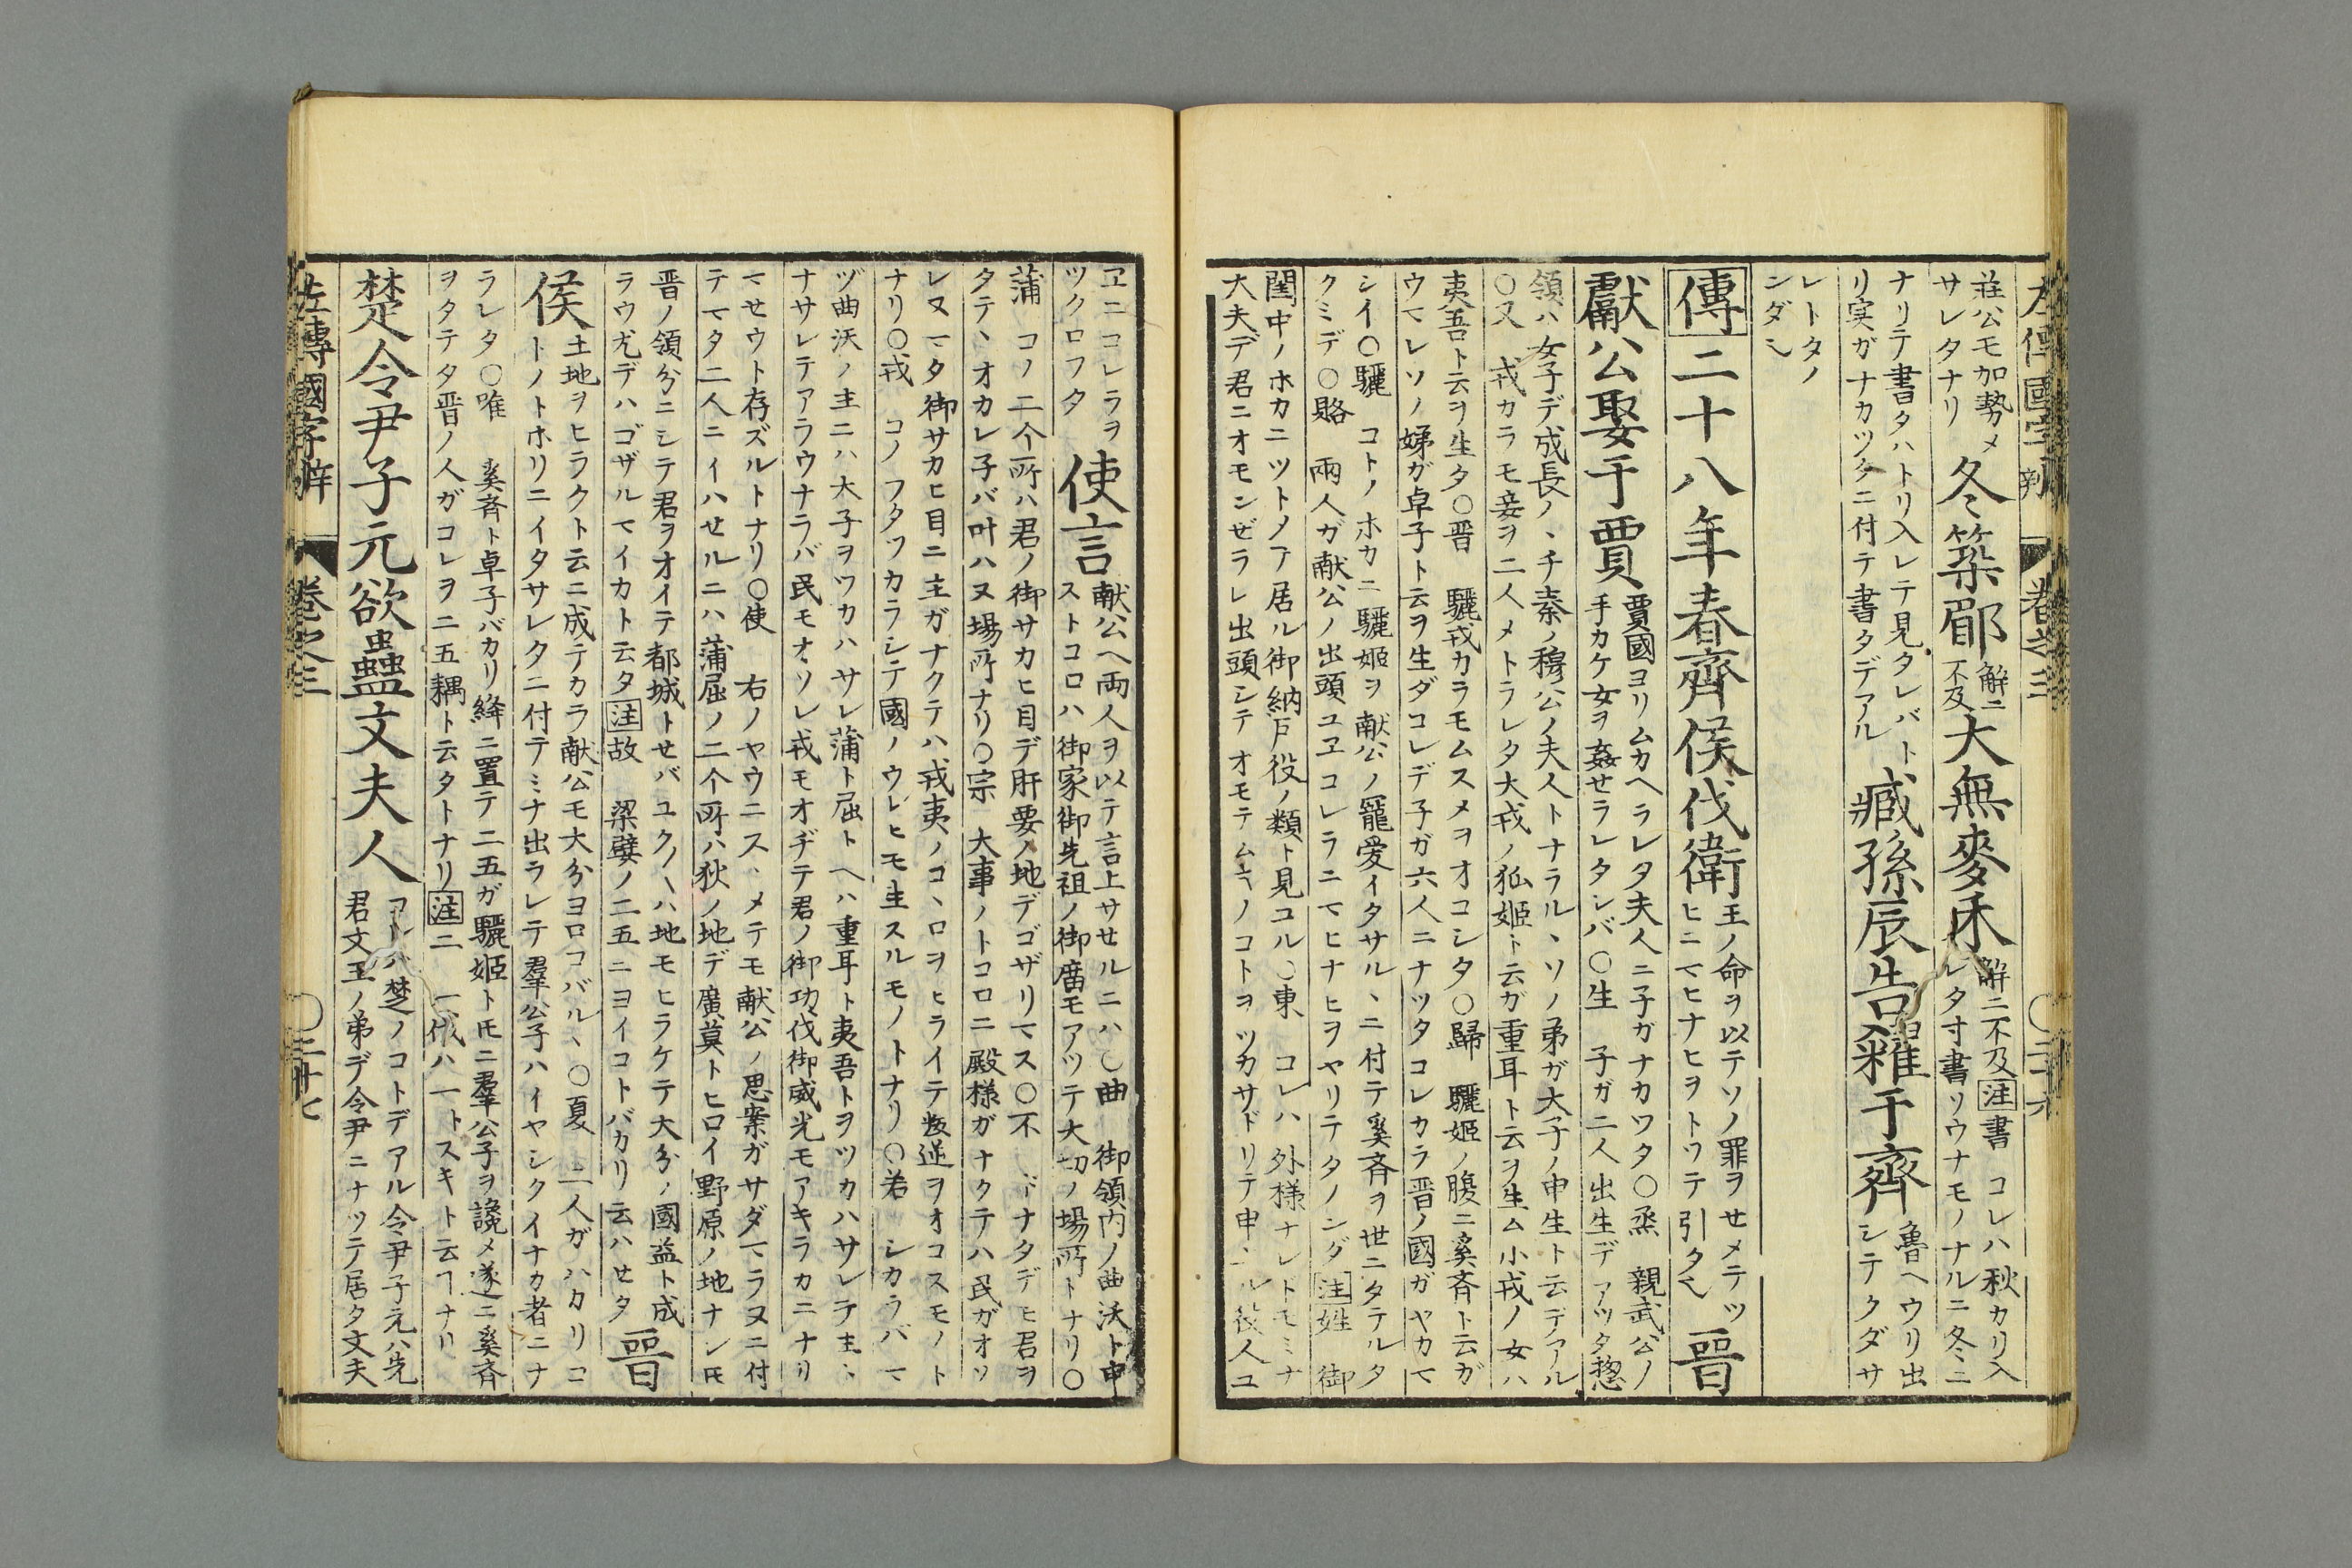 左傳國字辨 巻之三 〇三十六
莊公モ加勢メ
サレタナリ
冬築郿
解ニ
不及
大無麥禾
解ニ不及注書 コレハ秋カリ入
レタ寸書ソウナモノナルニ冬ニ
ナリテ書タハトリ入レテ見タレバト
リ実ガナカツタニ付テ書タデアル
臧孫辰告糴于齊
魯ヘウリ出
シテクダサ
レトタノ
ンダ也
傳二十八年春齊侯伐衛
王ノ命ヲ以テソノ罪ヲせメテツ
ヒニマヒナヒヲトツテ引タ也
晋
獻公娶于賈
賈國ヨリムカヘラレタ夫人ニ子ガナカツタ〇烝 親武公ノ
手カケ女ヲ姦せラレタレバ〇生 子ガ二人出生デアツタ惣
領ハ女子デ成長ノヽチ秦ノ穆公ノ夫人トナラルヽソノ弟ガ大子ノ申生ト云デアル
〇又 戎カラモ妾ヲ二人メトラレタ大戎ノ狐姬ト云ガ重耳ト云ヲ生ム小戎ノ女ハ
夷吾ト云ヲ生タ〇晋 驪戎カラモムスメヲオコシタ〇歸 驪姬ノ腹ニ奚斉ト云ガ
ウマレソノ娣ガ卓子ト云ヲ生ダコレデ子ガ六人ニナツタコレカラ晋ノ國ガヤカマ
シイ〇驪 コトノホカニ驪姬ヲ献公ノ寵愛イタサルヽニ付テ奚斉ヲ世ニタテルタ
クミデ〇賂 兩人ガ献公ノ出頭ユヱコレラニマヒナヒヲヤリテタノンダ注姓 御
閨中ノホカニツトメテ居ル御納戸役ノ類ト見ユル〇東 コレハ外様ナレトモミナ
大夫デ君ニオモンぜラレ出頭シテオモテムキノコトヲツカサドリテ申ス役人ユ
ヱニコレラヲ
ツクロフタ
使言
献公ヘ両人ヲ以テ言上サせルニハ〇曲 御領内ノ曲沃ト申
ストコロハ御家御先祖ノ御庿モアツテ大切ノ場所トナリ〇
蒲 コノ二个所ハ君ノ御サカヒ目デ肝要ノ地デゴザリマス〇不 ドナタデモ君ヲ
タテヽオカレ子バ叶ハヌ場所ナリ〇宗 大事ノトコロニ殿様ガナクテハ民ガオソ
レヌマタ御サカヒ目ニ主ガナクテハ戎夷ノコヽロヲヒライテ叛逆ヲオコスモノト
ナリ〇戎 コノフタツカラシテ國ノウレヒモ生スルモノトナリ〇若 シカラバマ
ヅ曲沃ノ主ニハ大子ヲツカハサレ蒲ト屈トヘハ重耳ト夷吾トヲツカハサレテ主ヽ
ナサレテアラウナラバ民モオソレ戎モオヂテ君ノ御功伐御威光モアキラカニナリ
マせウト存ズルトナリ〇使 右ノヤウニスヽメテモ献公ノ思案ガサダマラヌニ付
テマタ二人ニイハせルニハ蒲屈ノ二个所ハ狄ノ地デ廣莫トヒロイ野原ノ地ナレ𪜈
晋ノ領分ニシテ君ヲオイテ都城トせバユク〱ハ地モヒラケテ大分ノ國益ト成
ラウ尤デハゴザルマイカト云タ注故 梁嬖ノ二五ニヨイコトバカリ云ハせタ
晋
侯
土地ヲヒラクト云ニ成テカラ献公モ大分ヨロコバルヽ〇夏 二人ガハカリコ
トノトホリニイタサレタニ付テミナ出ラレテ羣公子ハイヤシクイナカ者ニナ
ラレタ〇唯 奚斉ト卓子バカリ絳ニ置テ二五ガ驪姬ト𪜈ニ羣公子ヲ讒メ遂ニ奚斉
ヲタテタ晋ノ人ガコレヲ二五耦ト云タトナリ注二 一伐ハ一トスキト云ヿナリ
楚令尹子元欲蠱文夫人
コレハ楚ノコトデアル令尹子元ハ先
君文王ノ弟デ令尹ニナツテ居タ文夫
左傳國字辨 巻之三 〇三十七